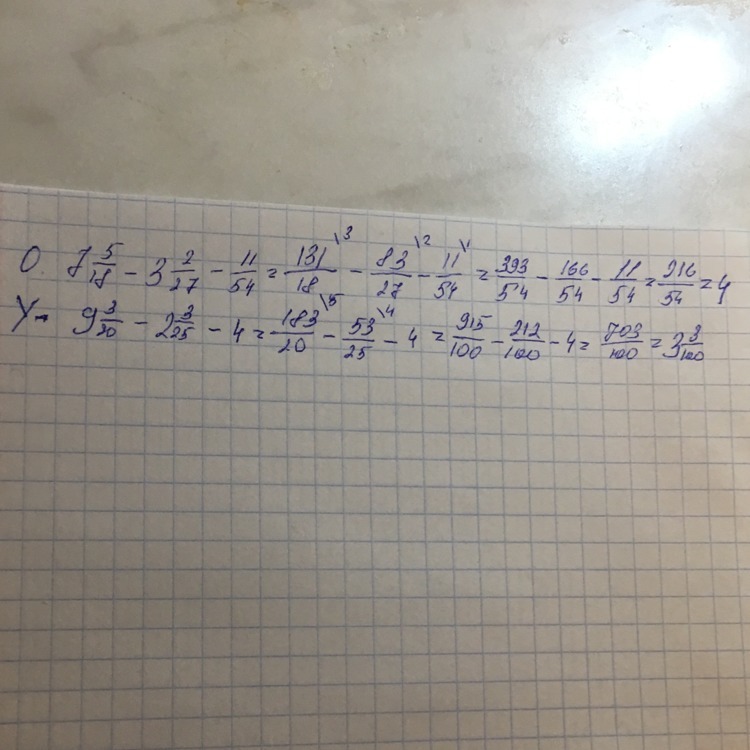 О. 7 5/18 - 3 2/27 - 11/54 = 131/18 \3 - 83/27 \2 - 11/54 \1 = 393/54 - 166/54 - 11/54 = 216/54 = 4
У - 9 3/20 - 2 3/25 - 4 = 183/20 \5 - 53/25 \4 - 4 = 915/100 - 212/100 - 4 = 703/100 = 3 3/100